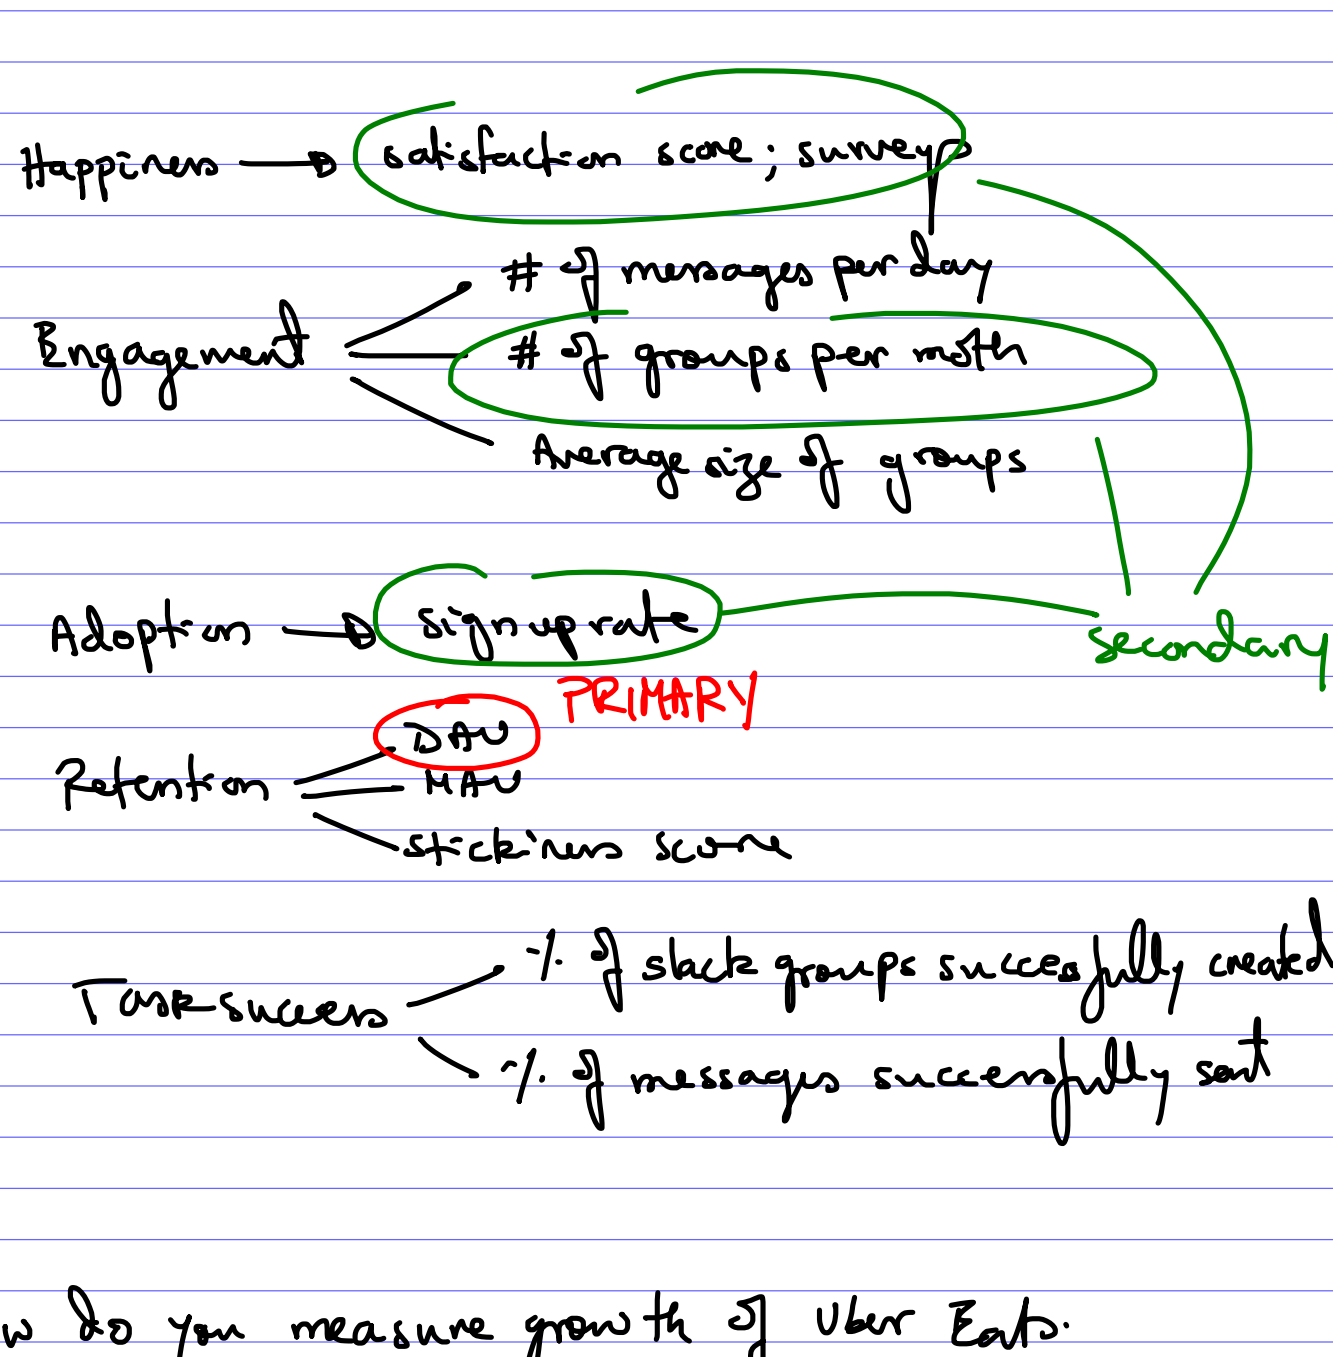 Happiness → satisfaction score; surveys
# of messages per day
Engagement # of groups per moth
Average size of groups
Adoption → sign up rate
secondary
PRIMARY
DAU
Retention MAU
stickiness score
% of slack groups successfully created
Task success
% of messages successfully sent
w do you measure growth of Uber Eats.